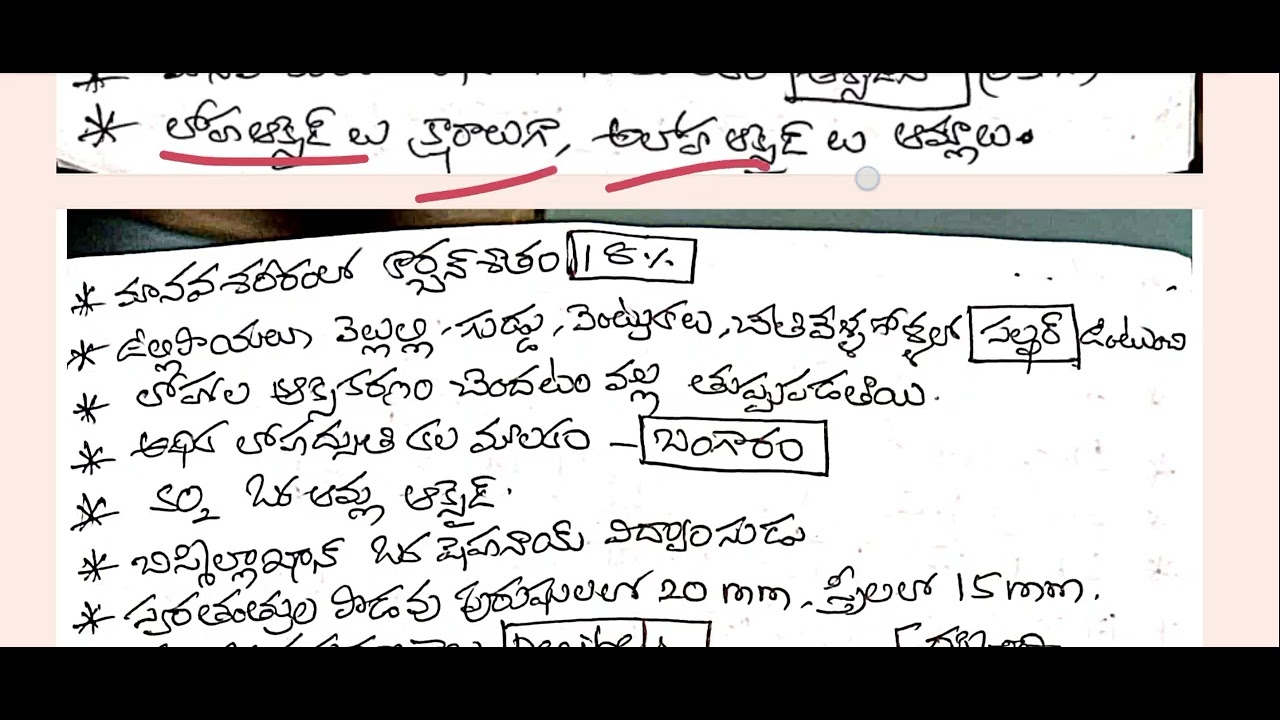 * లోహఆక్సైడ్ లు క్షారాలుగా, అలోహ ఆక్సైడ్ లు ఆమ్లాలు.
* మానవశరీరంలో కార్బన్ శాతం 18%
* ఉల్లిపాయలు, వెల్లుల్లి, గుడ్డు, వెంట్రుకలు, చేతివేళ్ళగోళ్ళలో సల్ఫర్ ఉంటుంది
* లోహాల ఆక్సీకరణం చెందటం వల్ల తుప్పుపడతాయి.
* అధిక లోహద్యుతి కల మూలకం - బంగారం
* SO₂ ఒక ఆమ్ల ఆక్సైడ్.
* బిస్మిల్లాఖాన్ ఒక షెహనాయ్ విద్వాంసుడు
* స్వరతంత్రుల పొడవు పురుషులలో 20 mm, స్త్రీలలో 15 mm.